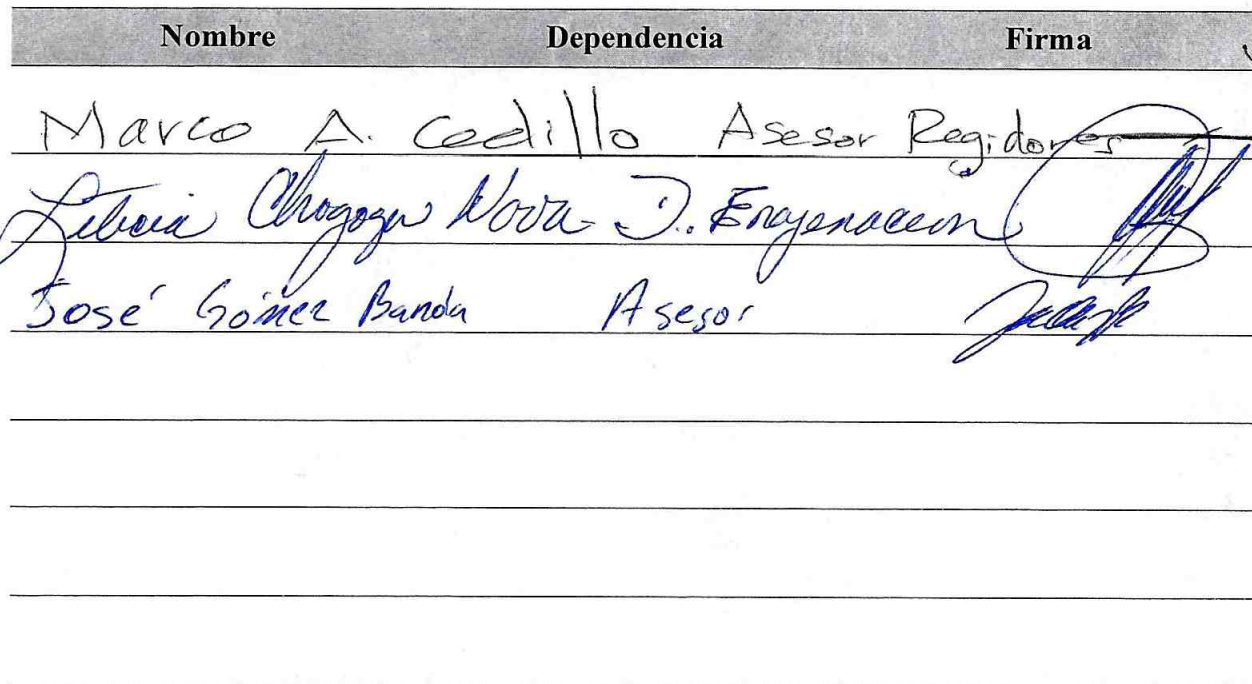 Nombre Dependencia Firma
Marco A. Cedillo Asesor Regidores
Nava D. Enajenacion
José Gómez Banda Asesor